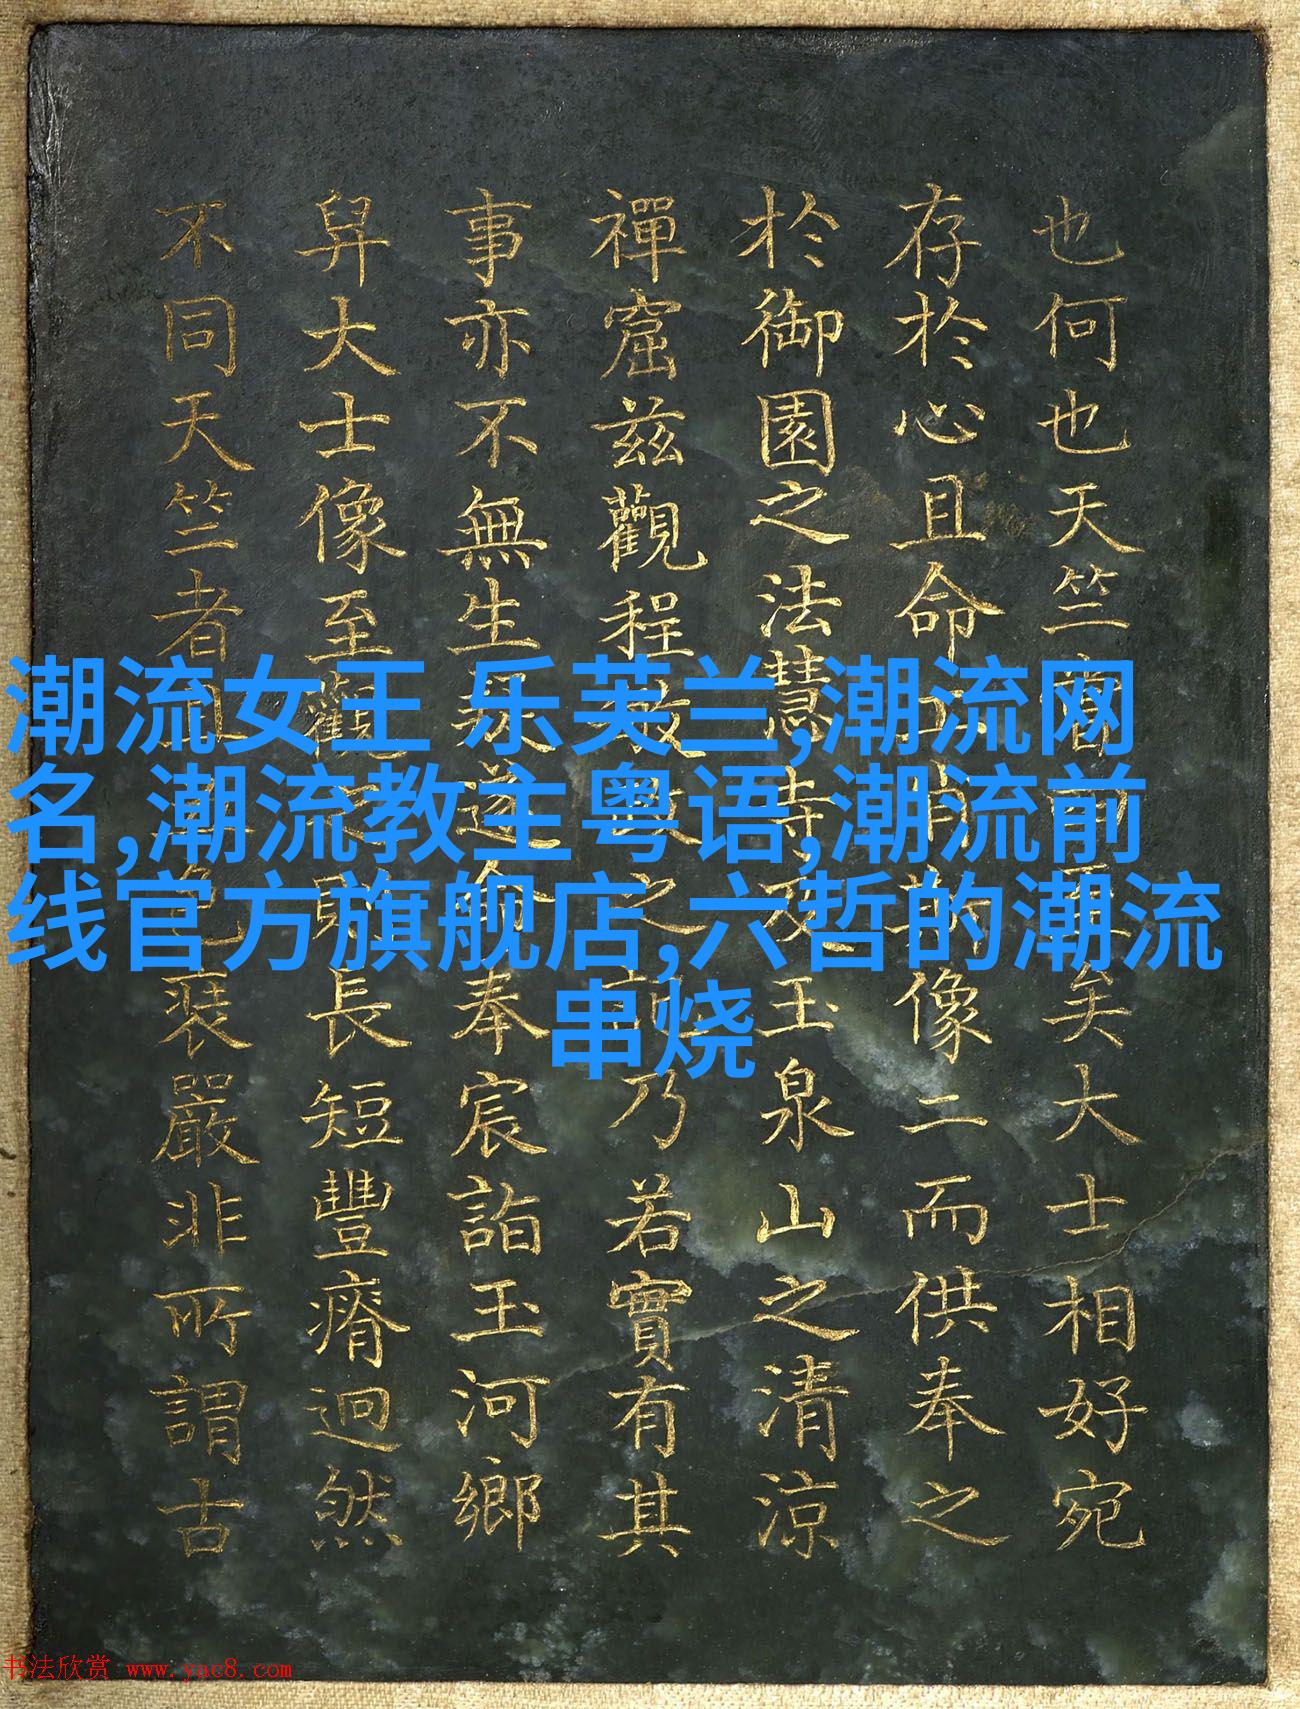 也何也天竺矣大士相好宛
存於心且命工肖其像二而供奉之
於御園之法慧寺及玉泉山之清涼
禪窟茲觀程敏政之記乃若實有其
事亦不無生疑遂命奉宸詣玉河鄉
舁大士像至觀之則長短豐瘠迥然
不同天竺者且裝嚴非所謂古
潮流女王 乐芙兰,潮流网
名,潮流教主粤语,潮流前
线官方旗舰店,六哲的潮流
串烧
书法欣赏 www.yac8.com